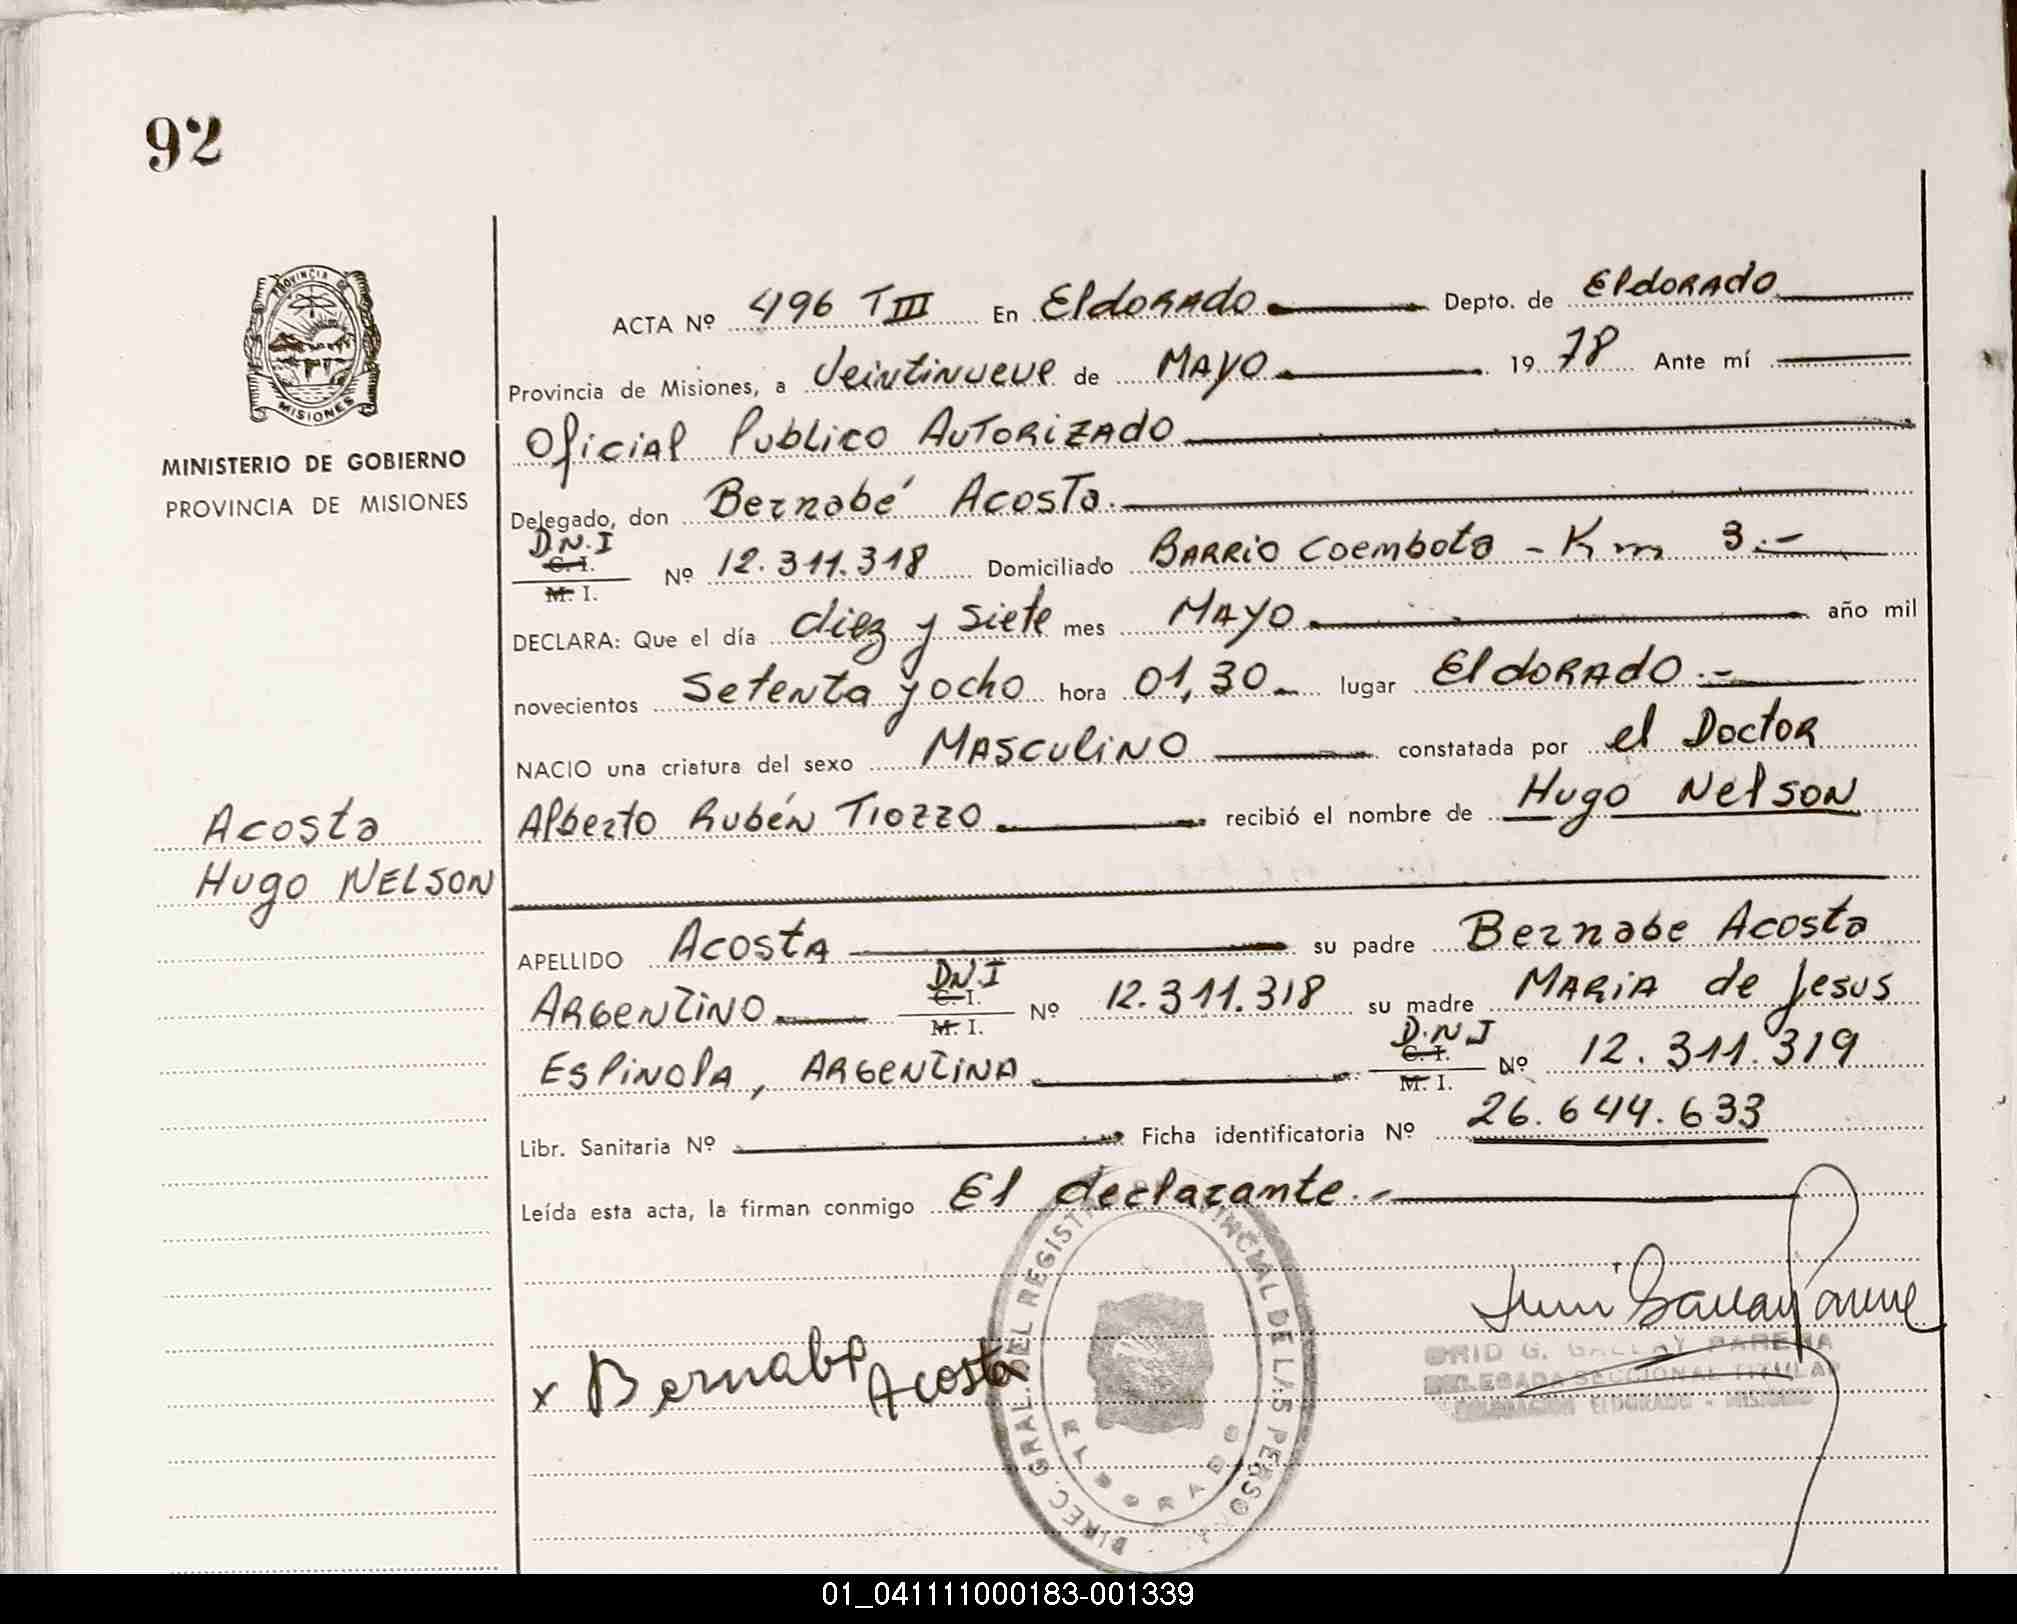 92
PROVINCIA DE
MISIONES
MINISTERIO DE GOBIERNO
PROVINCIA DE MISIONES
Acosta
Hugo NELSON
ACTA Nº 496 TIII En Eldorado Depto. de Eldorado
Provincia de Misiones, a Veintinueve de Mayo 1978 Ante mí
Oficial Publico Autorizado
Delegado, don Bernabé Acosta.
D.N.I
C. I.
M. I. Nº 12.311.318 Domiciliado Barrio Coembota - Km 3.-
DECLARA: Que el día diez y siete mes Mayo año mil
novecientos Setenta y ocho hora 01,30 lugar Eldorado.-
NACIO una criatura del sexo Masculino constatada por el Doctor
Alberto Rubén Tiozzo recibió el nombre de Hugo Nelson
APELLIDO Acosta su padre Bernabe Acosta
Argentino DNI C. I. M. I. Nº 12.311.318 su madre Maria de Jesus
Espinola, Argentina D.N.I C. I. M. I. Nº 12.311.319
Libr. Sanitaria Nº Ficha identificatoria Nº 26.644.633
Leída esta acta, la firman conmigo El declarante.-
x Bernabe Acosta
DIREC. GRAL. DEL REGISTRO PROVINCIAL DE LAS PERSONAS
ELDORADO
G. GALLAY PAREHA
DELEGADA SECCIONAL TITULAR
DELEGACION ELDORADO - MISIONES
01_041111000183-001339